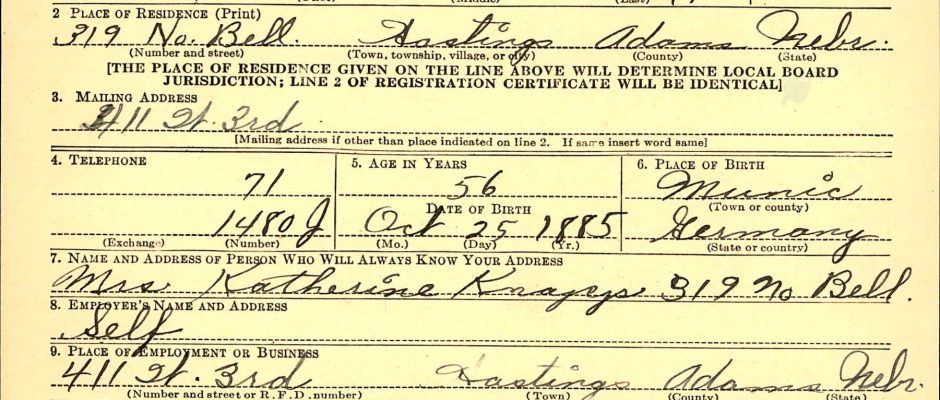 2 PLACE OF RESIDENCE (Print)
319 No. Bell. Hastings Adams Nebr.
(Number and street) (Town, township, village, or city) (County) (State)
[THE PLACE OF RESIDENCE GIVEN ON THE LINE ABOVE WILL DETERMINE LOCAL BOARD
JURISDICTION; LINE 2 OF REGISTRATION CERTIFICATE WILL BE IDENTICAL]
3. MAILING ADDRESS
411 W. 3rd
[Mailing address if other than place indicated on line 2. If same insert word same]
4. TELEPHONE 5. AGE IN YEARS 6. PLACE OF BIRTH
71 56 Munic
DATE OF BIRTH (Town or county)
1480 J Oct 25 1885 Germany
(Exchange) (Number) (Mo.) (Day) (Yr.) (State or country)
7. NAME AND ADDRESS OF PERSON WHO WILL ALWAYS KNOW YOUR ADDRESS
Mrs Katherine 319 No Bell.
8. EMPLOYER'S NAME AND ADDRESS
Self
9. PLACE OF EMPLOYMENT OR BUSINESS
411 W. 3rd Hastings Adams Nebr.
(Number and street or R. F. D. number) (Town) (County) (State)